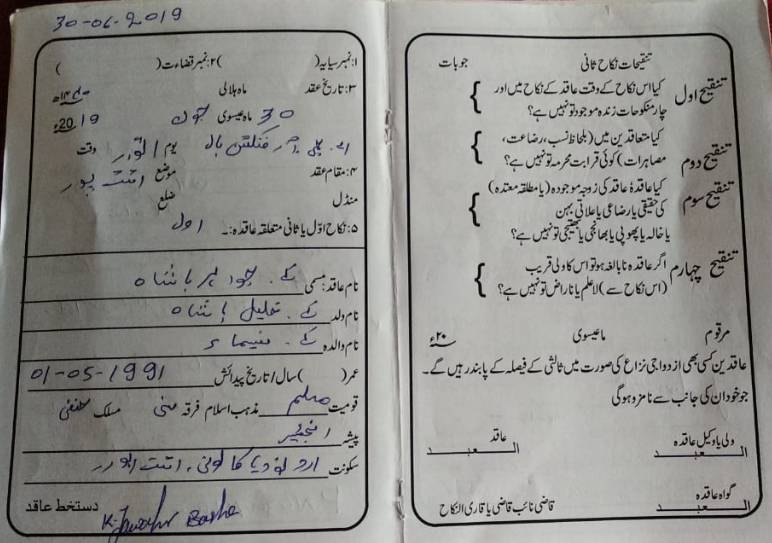 30-06-2019
۱: نمبر سیاہہ( )۲: نمبر قضاءت( )
۳: تاریخ عقد ماہ ہلالی ۱۴ھ
30 ماہ عیسوی جون 2019ء
فنکشن ہال یوم اتوار وقت
۴: مقام عقد موضع اننت پور
منڈل ضلع
۵: نکاح اوّل یا ثانی متعلقہ عاقدہ:۔ اول
نام عاقد: مسمی کے۔ جواہر باشاہ
نام ولد کے۔ خلیل باشاہ
نام والدہ کے۔
عمر( ) سال/تاریخ پیدائش 01-05-1991
قومیت مسلم مذہب اسلام فرقہ سنی مسلک حنفی
پیشہ انجینئر
سکونت کالونی، اننت پور
دستخط عاقد K. Jawahar Basha
تنقیحات نکاح ثانی جوبات
تنقیح اول کیا اس نکاح کے وقت عاقد کے نکاح میں اور
چار منکوحات زندہ موجود تو نہیں ہے؟
تنقیح دوم کیا متعاقدین میں (بلحاظ نسب، رضاعت،
مصاہرات) کوئی قرابت محرمہ تو نہیں ہے؟
تنقیح سوم کیا عاقدہ عاقد کی زوجہ موجودہ (یا مطلقہ معتدہ)
کی حقیقی یا رضاعی یا علاتی بہن
یا خالہ یا پھوپی یا بھانجی یا بھتیجی تو نہیں ہے؟
تنقیح چہارم اگر عاقدہ نابالغہ ہو تو اس کا ولی قریب
(اس نکاح سے) لاعلم یا ناراض تو نہیں ہے؟
مرقوم ماعیسوی ۲۰ء
عاقدین کسی بھی ازدواجی نزاع کی صورت میں ثالثی کے فیصلہ کے پابند رہیں گے۔
جو خود ان کی جانب سے نامزد ہوگی
ولی یا وکیل عاقدہ عاقد
العبد العبد
گواہ عاقدہ
العبد قاضی نائب قاضی یا قاری النکاح